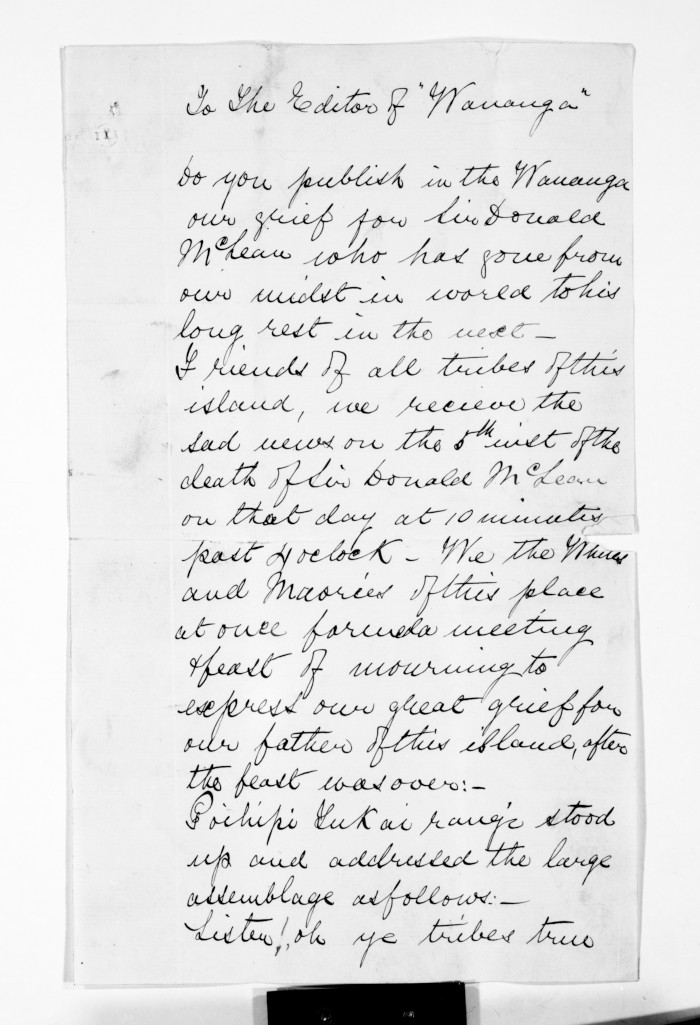 To The Editor of "Wananga"
Do you publish in the Wananga
our grief for Sir Donald
McLean who has gone from
our midst in world to his
long rest in the next —
Friends of all tribes of this
island, we recieve the
sad news on the 5th inst of the
death of Sir Donald McLean
on that day at 10 minutes
past 4 oclock — We the
and Maories of this place
at once formed a meeting
& feast of mourning to
express our great grief for
our father of this island, after
the feast was over:—
Poihipi Tukairangi stood
up and addressed the large
assemblage as follows:—
Listen! oh ye tribes true